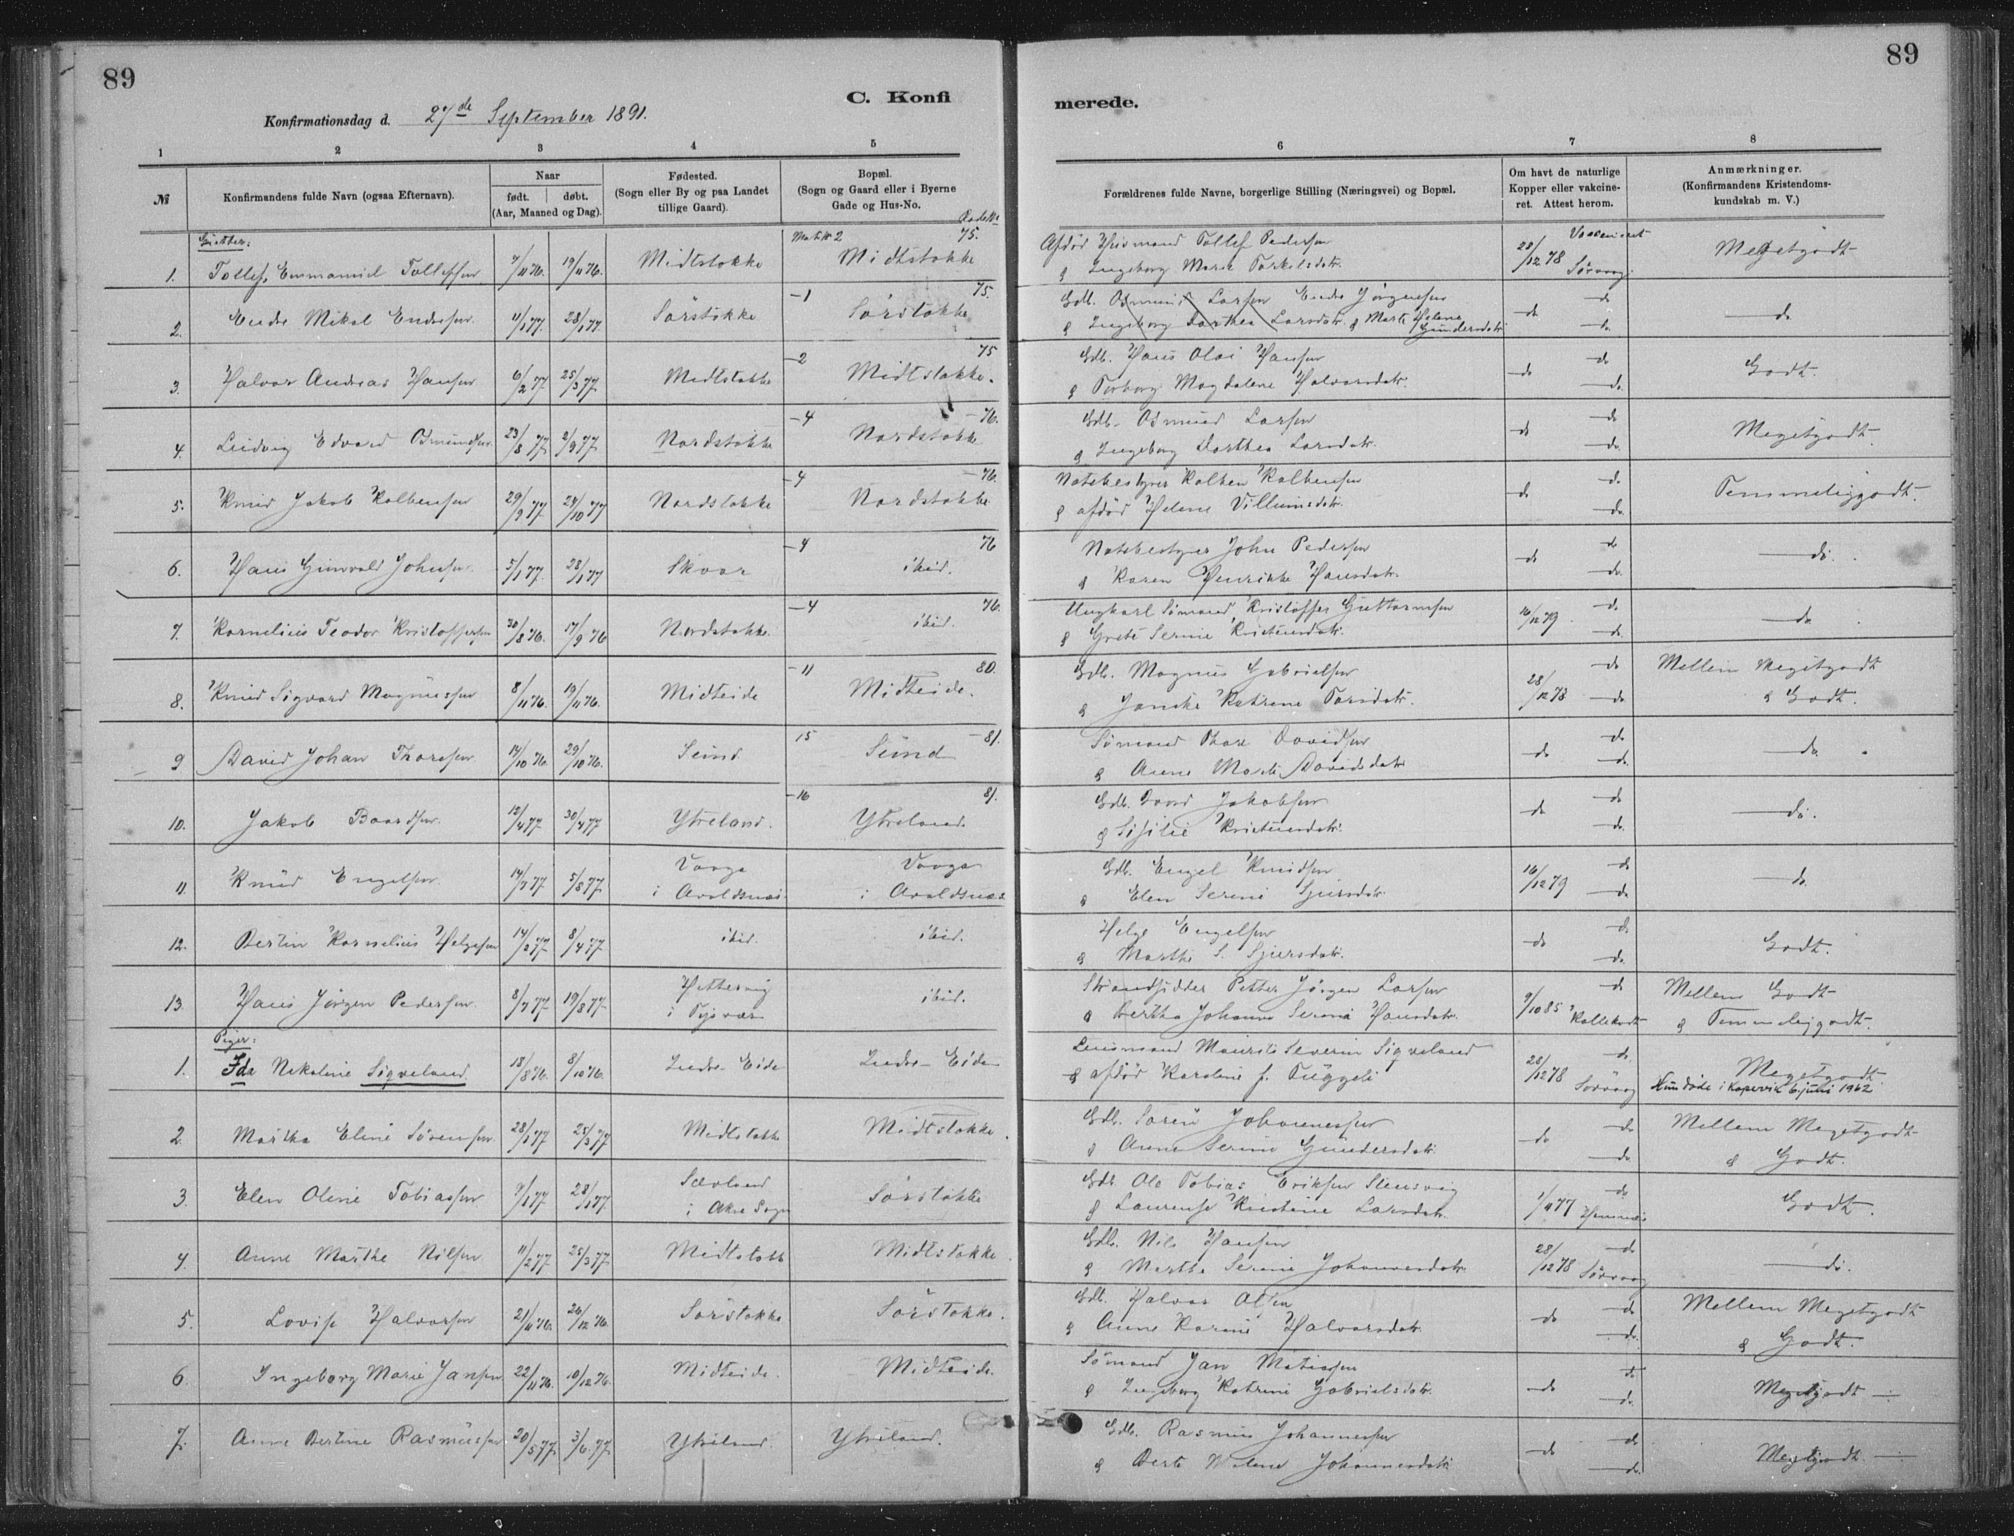 89
89
C. Konfi
merede.
Konfirmationsdag d. 27de September 1891.
1 2 3 4 5 6 7 8
№ Konfirmandens fulde Navn (ogsaa Efternavn).
Naar
født. døbt.
(Aar, Maaned og Dag).
Fødested.
(Sogn eller By og paa Landet
tillige Gaard).
Bopæl.
(Sogn og Gaard eller i Byerne
Gade og Hus-No.
Forældrenes fulde Navne, borgerlige Stilling (Næringsvei) og Bopæl.
Om havt de naturlige
Kopper eller vakcine-
ret. Attest herom.
Anmærkninger.
(Konfirmandens Kristendoms-
kundskab m. V.)
Gutter:
1. Tollef Emmanuel Tollefsen 7/11 76. 19/11 76. Midtstokke Mat № 2 75. Midtstokke
Afdød Huusmand Tollef Pedersen
& Ingeborg Marie Torkelsdatr. 28/12 78 Vaccineret Sørvaag Megetgodt
2. Endre Mikal Endresen 11/1 77. 28/1 77. Sørstokke —1 75. Sørstokke
Gdb. Osmund Larsen Endre Jørgensen
& Ingeborg Dorthea Larsdatr. & Marte Helene Gundersdatr. do do do do
3. Halvor Andreas Hansen 6/2 77 25/3 77. Midtstokke —2 75 Midtstokke.
Gdb. Hans Olai Hansen
& Torborg Magdalene Halvorsdatr. do do do Godt.
4. Ludvig Edvard Osmundsen 23/8 77. 2/9 77. Nordstokke —4 —76. Nordstokke
Gdb. Osmund Larsen
& Ingeborg Dorthea Larsdatr. do do do Megetgodt.
5. Knud Jakob Kolbensen 29/9 77. 24/10 77 Nordstokke —4 —76. Nordstokke
Notebestyrer Kolben Kolbensen
& afdød Helene Villumsdatr. do do do Temmeliggodt.
6. Hans Gunvald Johnsen 5/1 77. 28/1 77 Skaar —4 76 ibid.
Notebestyrer John Pedersen
& Karen Henrikke Hansdatr. do do do do.
7. Kornelius Teodor Kristoffersen 30/8 76. 17/9 76 Nordstokke. —4 76. ibid.
Ungkarl Sømand Kristoffer Guttormsen
& Grete Serine Kristensdatr. 16/12 79 do do do
8. Knud Sigvard Magnussen 8/11 76. 19/11 76. Midteide —11 80. Midteide.
Gdb. Magnus Gabrielsen
& Katrine Torsdatr. 28/12 78 do do Mellem Megetgodt
& Godt.
9 David Johan Thoresen 17/10 76. 29/10 76. Sund 15 —81. Sund
Sømand Thore Davidsen
& Anne Marte Davidsdatr do do do do
10. Jakob Baardsen 13/4 77 30/4 77 Ytreland. —16 81. Ytreland
Gdb. Baard Jakobsen
& Sisilie Kristensdatr. do do do do.
11. Knud Engelsen 14/7 77 5/8 77. Vaage
i Avaldsnæs Vaage
i Avaldsnæs
Gdb. Engel Knudsen
& Elen Serine Sjursdatr. 16/12 79 do do do
12. Bertin Kornelius Helgesen 14/2 77. 8/4 77. ibid. ibid.
Helge Engelsen
& Marthe S. Sjursdatr. do do do Godt.
13. Hans Jørgen Pedersen 8/7 77 19/8 77. Hettervig
i Tysvær ibid.
Strandsidder Petter Jørgen Larsen
& Bertha Johanna Serina Hansdatr. 9/10 85 do Mellem Godt
& Temmeliggodt.
Piger:
1. Ida Nikoline Sigveland 18/8 76. 8/10 76. Indre-Eide Indre-Eide
Lensmand Maurits Severin Sigveland
& afdød Karoline f. Tüggeli 28/12 78 do Sørvaag Megetgodt.
Hun døde i Kopervik 6 juni 1962
2. Martha Eline Sørensen 28/1 77 25/3 77 Midtstokke Midtstokke.
Gdb. Søren Johannessen
& Anna Serine Gundersdatr. do do do Mellem Megetgodt
& Godt.
3. Elen Oline Tobiassen 9/1 77 28/1 77. Sævland
i Akre Sogn Sørstokke
Gdb. Ole Tobias Eriksen Stensvig
& Laurense Kristine Larsdatr. 1/4 77 do Godt.
4. Anne Marthe Nilsen 11/2 77 25/3 77. Midtstokke Midtstokke.
Gdb. Nils Hansen
& Marthe Serine Johannesdatr. 28/12 78 do Sørvaag do.
5. Lovise Halvorsen 21/11 76. 26/12 76. Sørstokke Sørstokke.
Gdb. Halvor Olsen
& Anne Karine Halvorsdatr. do do do Mellem Megetgodt
& Godt.
6. Ingeborg Marie Jansen 22/11 76. 10/12 76. Midteide. Midteide.
Sømand Jan Matiassen
& Ingeborg Katrine Gabrielsdatr. do do do Megetgodt
7. Anne Bertine Rasmussen 20/5 77. 3/6. 77. Ytreland. Ytreland.
Gdb. Rasmus Johannessen
& Berte Johannesdatr do do do Megetgodt.